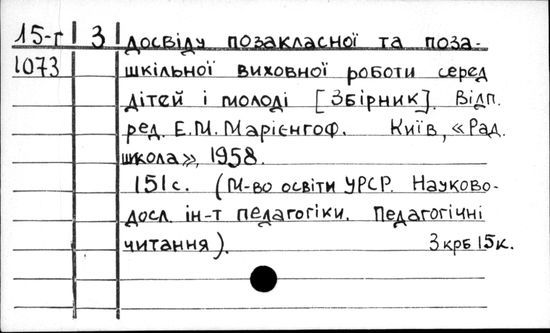 15-г 3 досвіду позакласної та поза-
1073 шкільної виховної роботи серед
дітей і молоді [Збірник]. Відп.
ред. Е.М. Марієнгоф. Київ, «Рад.
школа», 1958.
151 с. (М-во освіти УРСР. Науково-
досл. ін-т педагогіки. Педагогічні
читання). 3 крб 15 к.